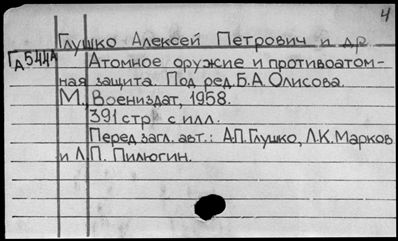 4
Глушко Алексей Петрович и др
ГД544А Атомное оружие и противоатом-
ная защита. Под ред. Б.А. Олисова.
М., Воениздат, 1958.
391 стр с илл.
Перед загл. авт.: А.П. Глушко, Л.К. Марков
и Л.П. Пилюгин.